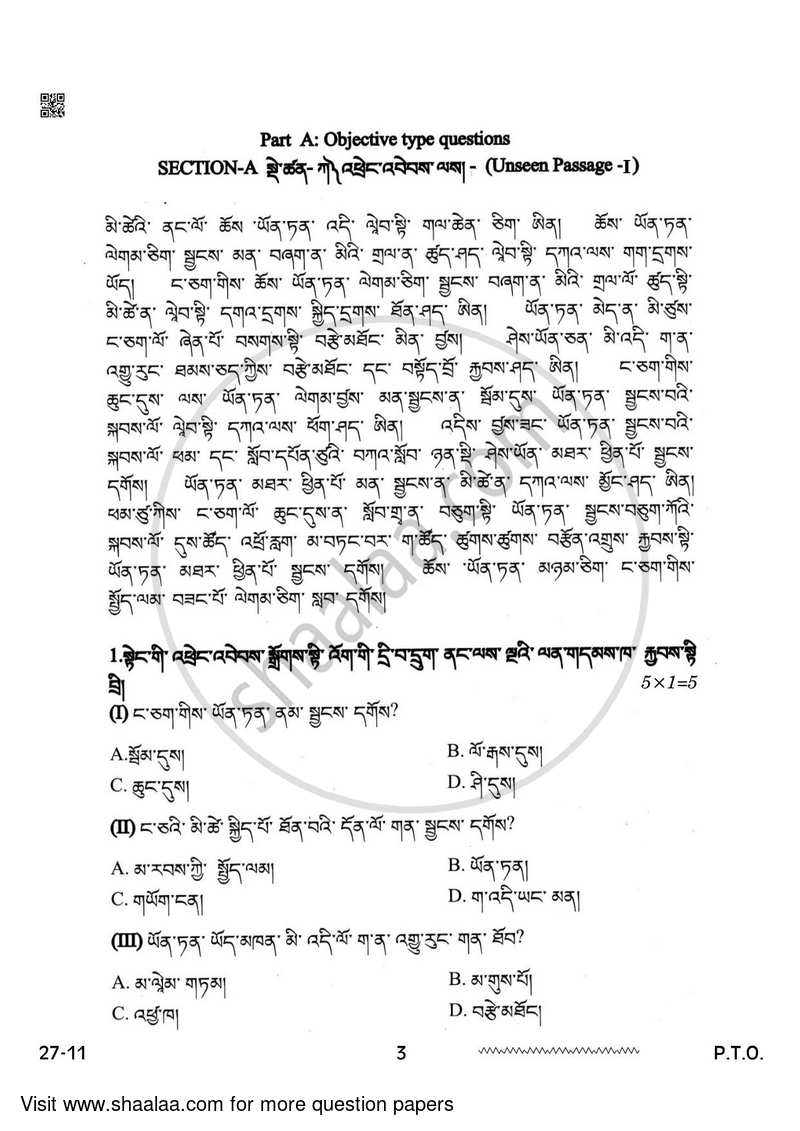 Part A: Objective type questions
SECTION-A སྡེ་ཚན- ཀ།༽ འཕྲེང་འབེབས་ལས།- (Unseen Passage -I)
མི་ཚེའི་ ནང་ལོ་ ཆོས་ ་ཡོན་ཏན་ འདི་ ལྷེབ་སྟི་ གལ་ཆེན་ ཅིག་ ཨིན། ཆོས་ ཡོན་ཏན་
ལེགམ་ཅིག་ སྦྱངས་ མན་ བཞག་ན་ མིའི་ གྲལ་ན་ ཚུད་ཤད་ ལྷེབ་སྟི་ དཀའ་ལས་ གག་དྲགས་
ཡོད། ང་ཅག་གིས་ ཆོས་ ཡོན་ཏན་ ལེགམ་ཅིག་ སྦྱངས་ བཞག་ན་ མིའི་ གྲལ་ལོ་ ཚུད་སྟི་
མི་ཚེ་ན་ ལྷེབ་སྟི་ དགའ་དྲགས་ སྐྱིད་དྲགས་ ཐོན་ཤད་ ཨིན། ཡོན་ཏན་ མེད་ན་ མི་ཙུས་
ང་ཅག་ལོ་ ཞེན་པོ་ བསགས་སྟི་ བརྩེ་མཐོང་ མིན་ བྱས། ཤེས་ཡོན་ཅན་ མི་འདི་ ག་ན་
འགྱུ་རུང་ ཐམས་ཅད་ཀྱིས་ བརྩེ་མཐོང་ དང་ བསྟོད་བྲོ་ རྐྱབས་ཤད་ ཨིན། ང་ཅག་གིས་
ཆུང་དུས་ ལས་ ཡོན་ཏན་ ལེགམ་བྱས་ མན་སྦྱངས་ན་ སྦོམ་དུས་ ཡོན་ཏན་ སྦྱངས་བའི་
སྐབས་ལོ་ ལྷེབ་སྟི་ དཀའ་ལས་ ཕོག་ཤད་ ཨིན། འདིས་ བྱས་ཟང་ ཡོན་ཏན་ སྦྱངས་བའི་
སྐབས་ལོ་ ཕམ་ དང་ སློབ་དཔོན་ཙུའི་ བཀའ་སློབ་ ཉན་སྟི་ ཤེས་ཡོན་ མཐར་ ཕྱིན་པོ་ སྦྱངས་
དགོས། ཡོན་ཏན་ མཐར་ ཕྱིན་པོ་ མན་ སྦྱངས་ན་ མི་ཚེ་ན་ དཀའ་ལས་ མྱོང་ཤད་ ཨིན།
ཕམ་ཙུ་ཀིས་ ང་ཅག་ལོ་ ཆུང་དུས་ན་ སློབ་གྲྭ་ན་ བཅུག་སྟི་ ཡོན་ཏན་ སྦྱངས་བཅུག་ཀོའི་
སྐབས་ལོ་ དུས་ཚོད་ འཕྲོ་རླག་ མ་བཏང་བར་ ག་ཚོད་ ཚུགས་ཚུགས་ བརྩོན་འགྲུས་ རྐྱབས་སྟི་
ཡོན་ཏན་ མཐར་ ཕྱིན་པོ་ སྦྱངས་ དགོས། ཆོས་ ་ཡོན་ཏན་ མཉམ་ཅིག་ ང་ཅག་གིས་
སྤྱོད་ལམ་ བཟང་པོ་ ལེགམ་ཅིག་ སླབ་ དགོས།
1.སྟེང་གི་ འཕྲེང་འབེབས་ སྒྲོགས་སྟི་ འོག་གི་ དྲི་བ་དྲུག་ ནང་ལས་ ལྔའི་ ལན་གདམས་ཁ་ རྐྱབས་སྟི་
བྲི། 5×1=5
(I) ང་ཅག་གིས་ ཡོན་ཏན་ ནམ་ སྦྱངས་ དགོས?
A.སྦོམ་དུས། B. ལོ་རྒས་དུས།
C. ཆུང་དུས། D. ཤི་དུས།
(II) ང་ཅའི་ མི་ཚེ་ སྐྱིད་པོ་ ཐོན་བའི་ དོན་ལོ་ གན་ སྦྱངས་ དགོས?
A. མ་རབས་ཀྱི་ སྤྱོད་ལམ། B. ཡོན་ཏན།
C. གཡོག་ངན། D. ག་འདི་ཡང་ མན།
(III) ཡོན་ཏན་ ཡོད་མཁན་ མི་ འདི་ལོ་ ག་ན་ འགྱུ་རུང་ གན་ ཐོབ?
A. མ་ལྷེམ་ གཏམ། B. མ་གུས་པོ།
C. འཕྱ་ཁ། D. བརྩེ་མཐོང།
27-11 3 P.T.O.
Visit www.shaalaa.com for more question papers
shaalaa.com